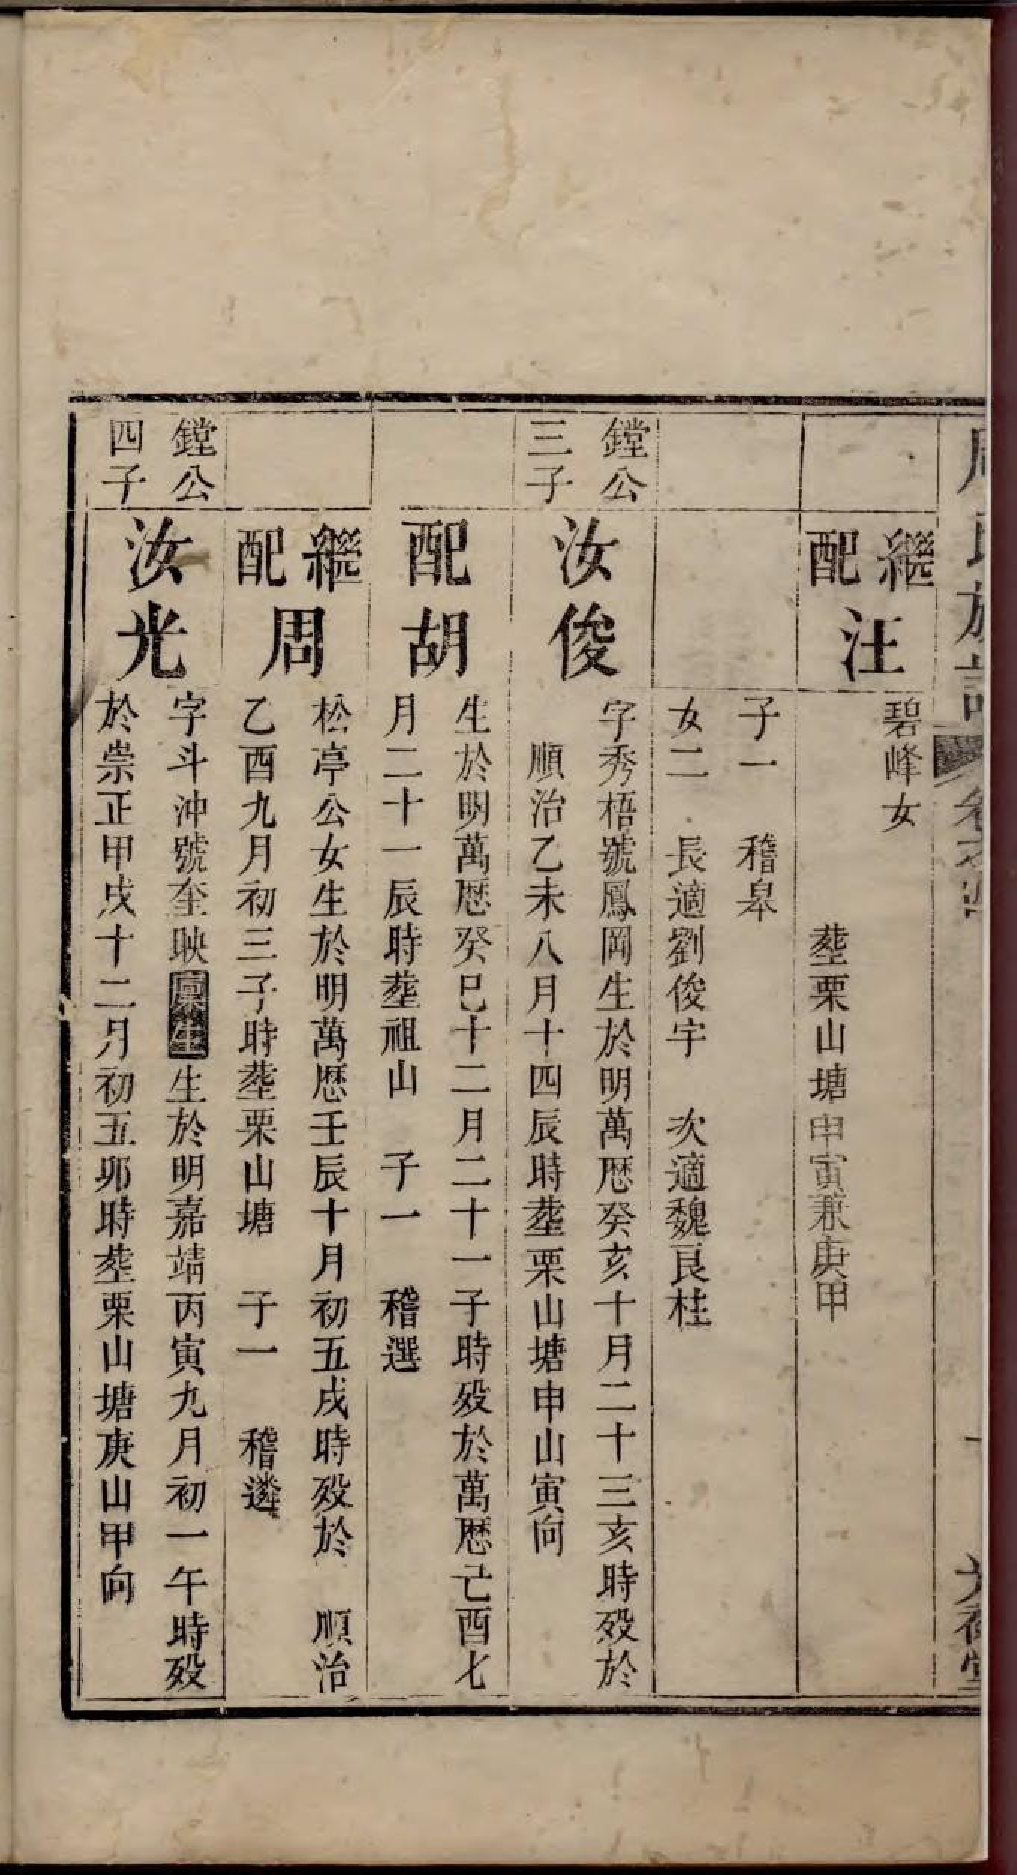 繼配汪
碧峰女
塟栗山塘申寅兼庚甲
子一　稽皋
女二　長適劉俊宇　次適魏良柱
鏜公
三子
汝俊
字秀梧號鳳岡生於明萬歷癸亥十月二十三亥時殁於
順治乙未八月十四辰時塟栗山塘申山寅向
配胡
生於明萬歷癸巳十二月二十一子時殁於萬歷己酉七
月二十一辰時塟祖山　子一　稽選
繼配周
松亭公女生於明萬歷壬辰十月初五戌時殁於　順治
乙酉九月初三子時塟栗山塘　子一　稽遴
鏜公
四子
汝光
字斗沖號奎映生於明嘉靖丙寅九月初一午時殁
於崇正甲戌十二月初五卯時塟栗山塘庚山甲向